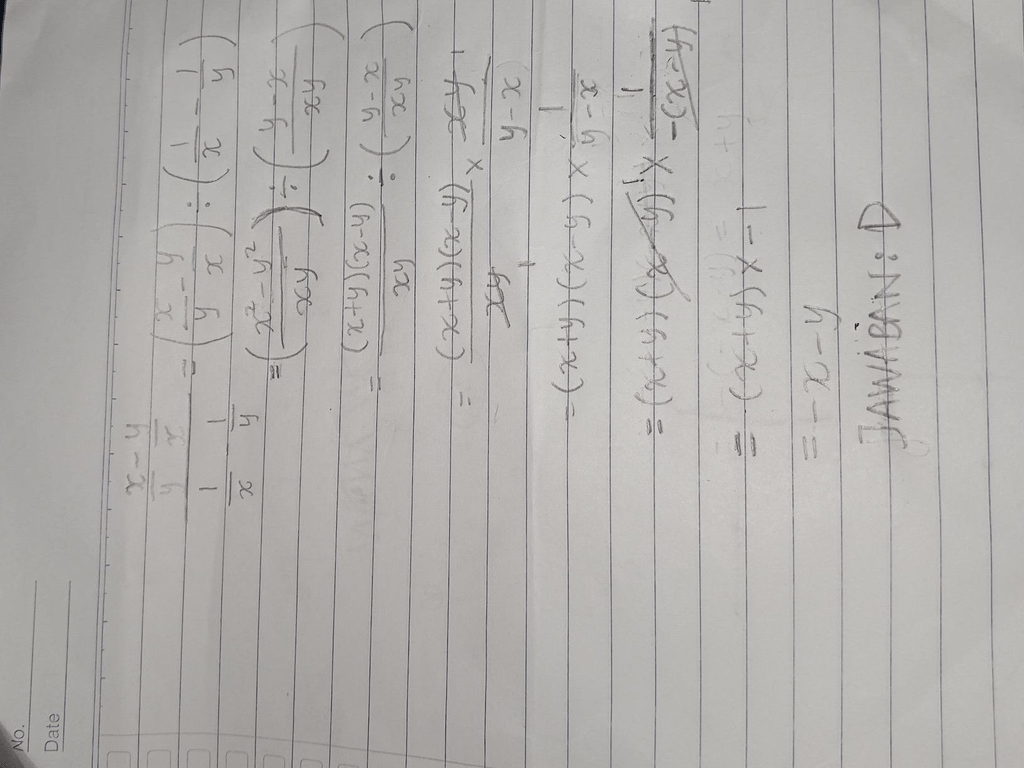 No.
Date
x/y - y/x / 1/x - 1/y = (x/y - y/x) : (1/x - 1/y)
= (x² - y² / xy) ÷ (y - x / xy)
= (x+y)(x-y) / xy : (y - x / xy)
= (x+y)(x-y) / xy × xy / y - x
= (x+y)(x-y) × 1 / y - x
= (x+y)(x-y) × 1 / -(x-y)
= (x+y) × -1
= -x - y
JAWABAN: D